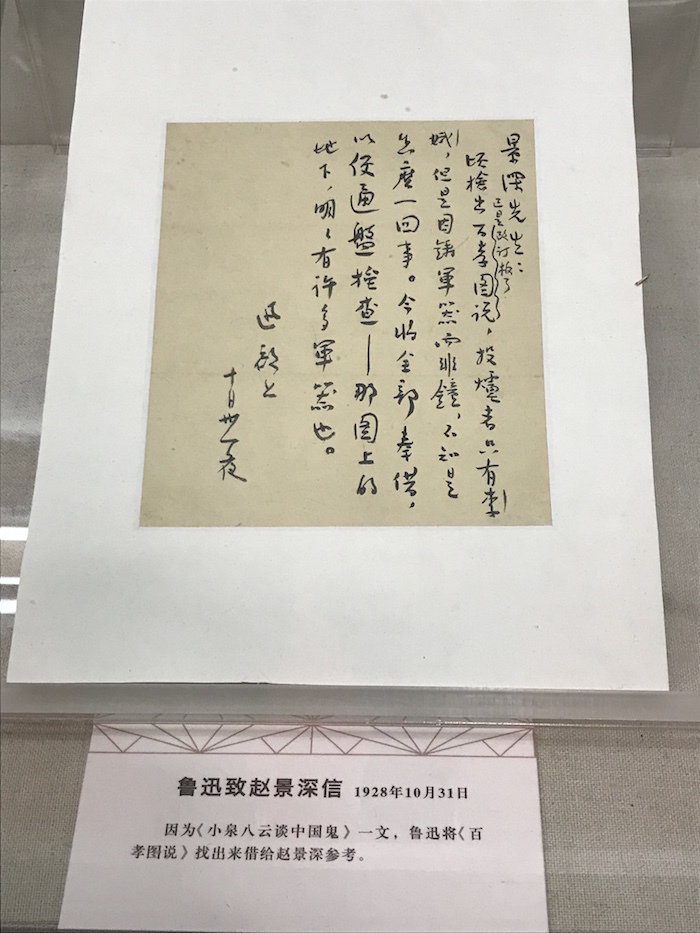 景深先生：
頃檢出百孝图说，投爐者只有李
已是改订板了
娥，但是因鑄軍器而非鐘，不知是
怎麼一回事。今将全部奉借，
以便通盤檢查——那图上的
地下，明々有许多軍器也。
迅啟上
十月卅一夜
鲁迅致赵景深信 1928年10月31日
因为《小泉八云谈中国鬼》一文，鲁迅将《百
孝图说》找出来借给赵景深参考。